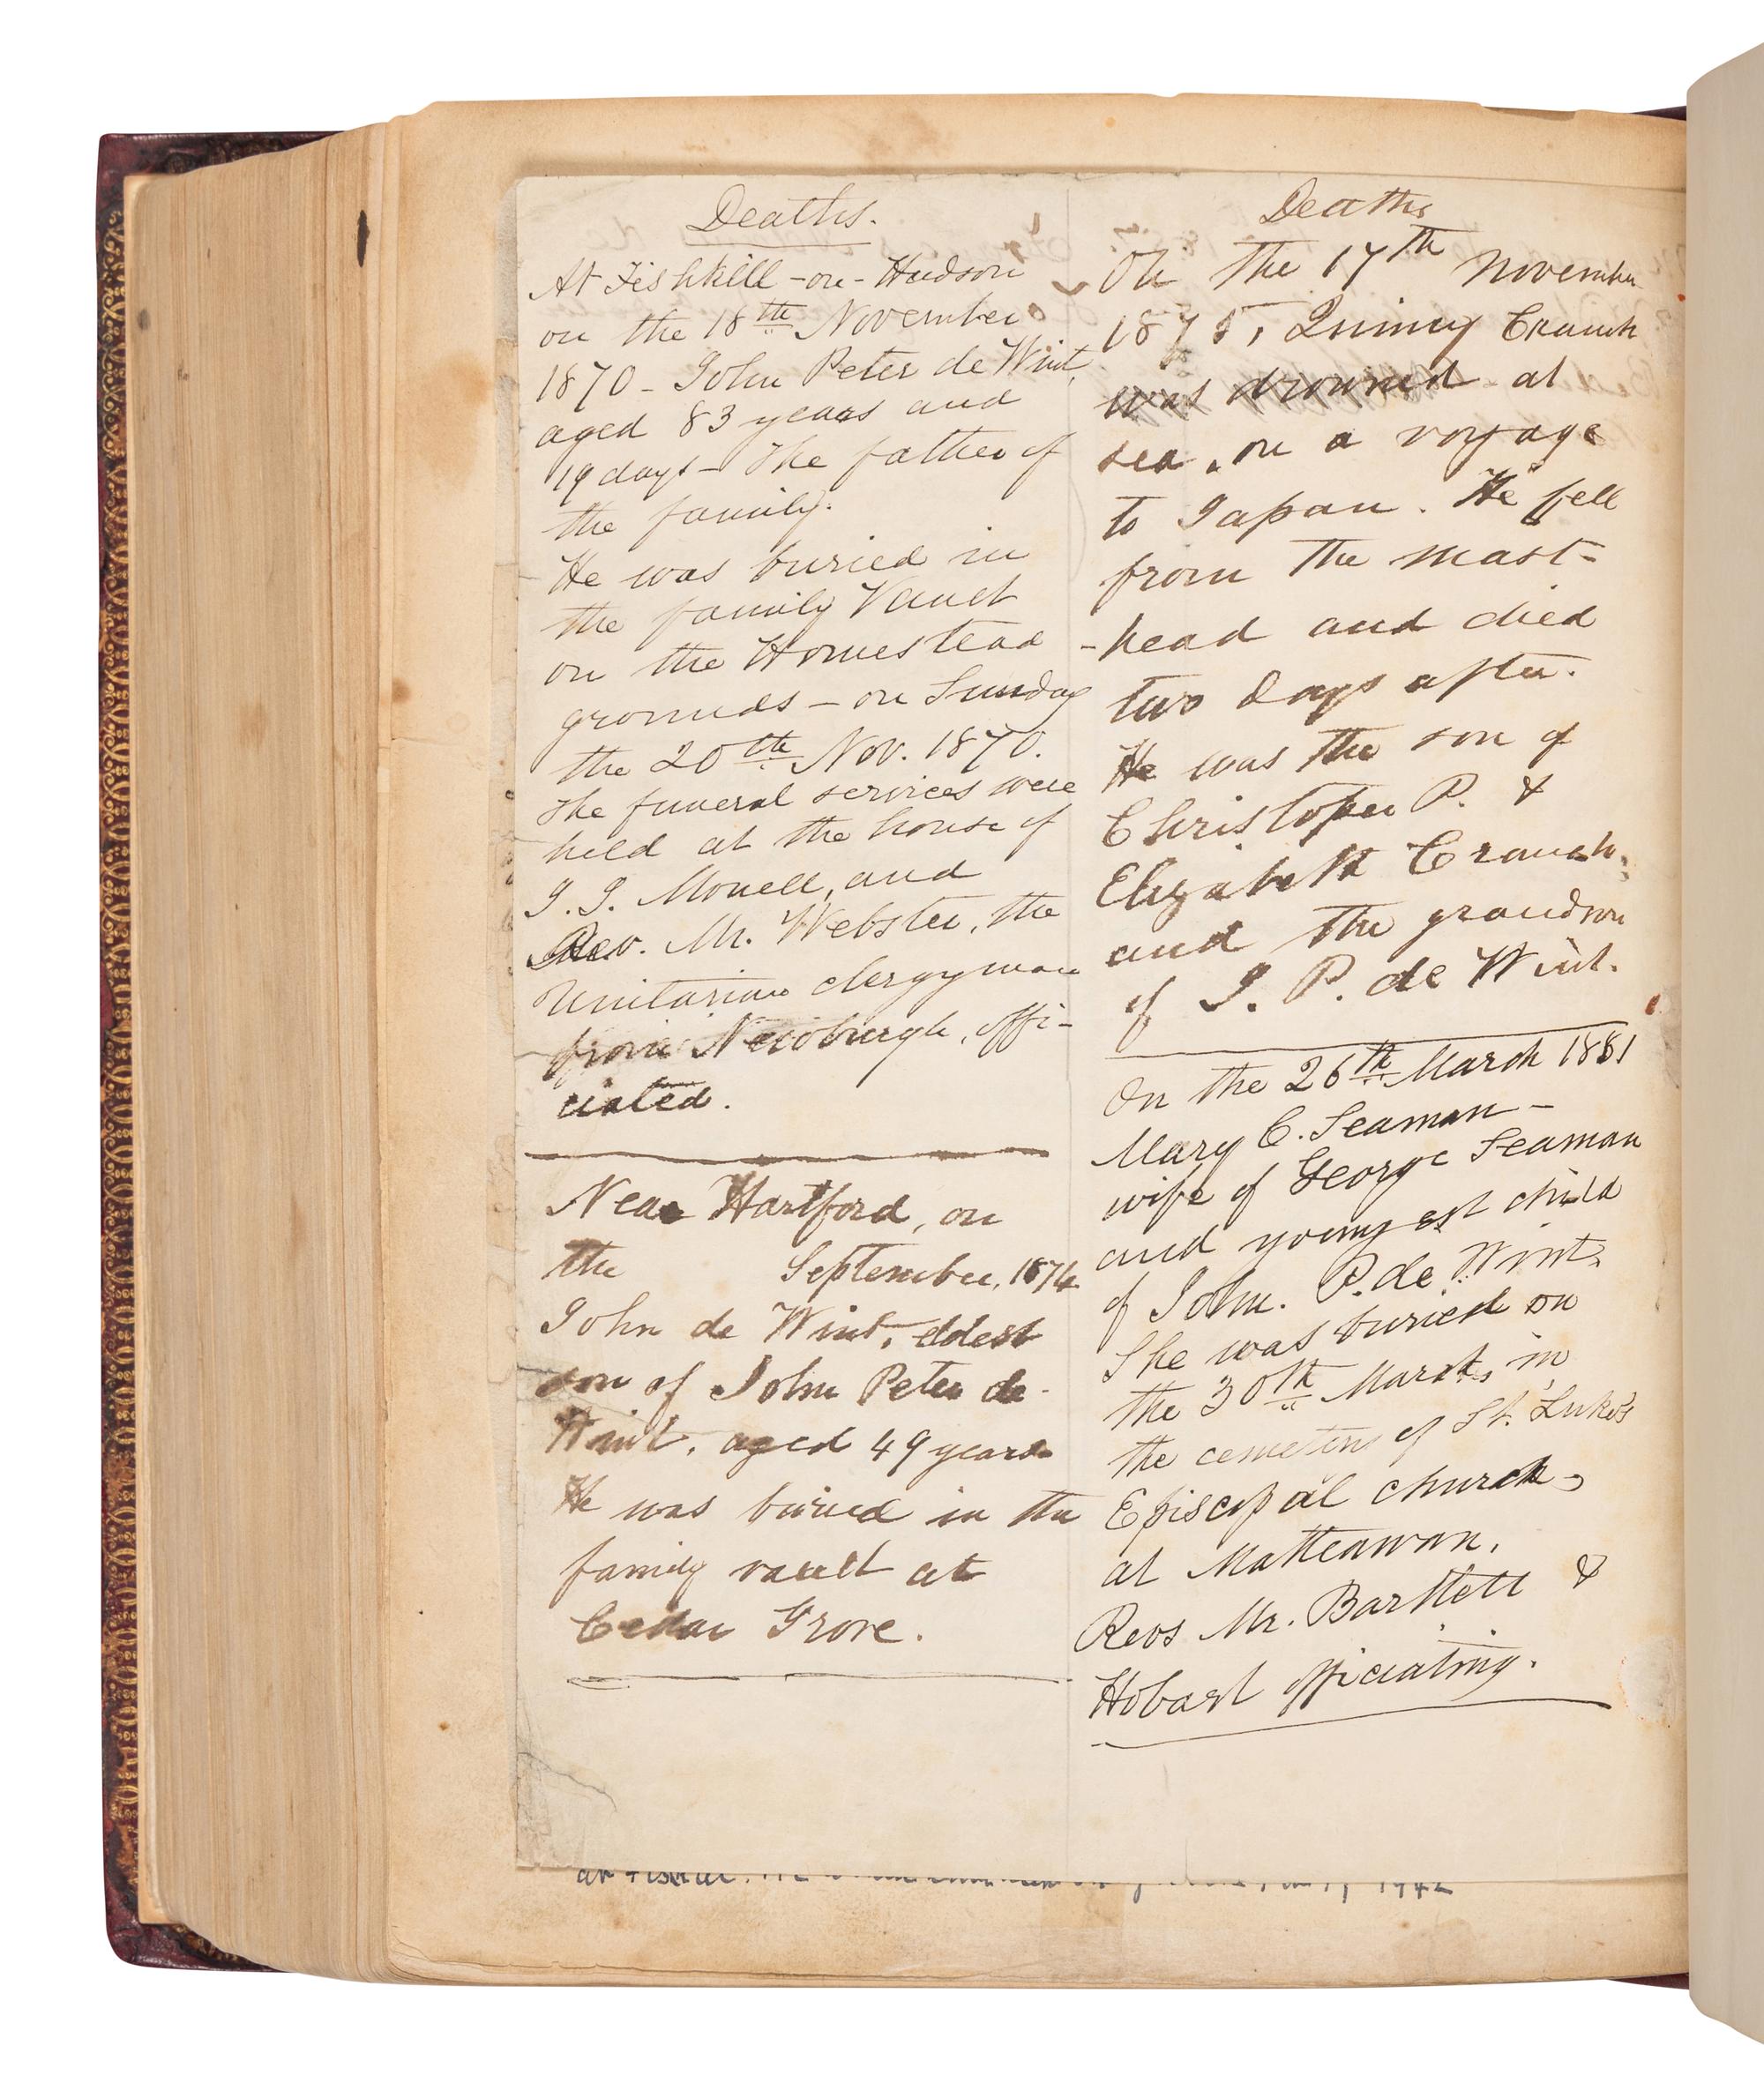 Deaths.
At Fishkill-on-Hudson
on the 18th November
1870 - John Peter de Wint,
aged 83 years and
19 days - The father of
the family.
He was buried in
the family Vault
on the Homestead
grounds - on Sunday
the 20th Nov. 1870.
The funeral services were
held at the house of
J. J. Monell, and
Rev. Mr. Webster, the
Unitarian clergyman
from Newburgh, offi-
ciated.
Near Hartford, on
the September, 1874
John de Wint, eldest
son of John Peter de
Wint, aged 49 years
He was buried in the
family vault at
Cedar Grove.
Deaths
On the 17th November
1875, Quincy Cranch
was drowned at
sea, on a voyage
to Japan. He fell
from the mast-
-head and died
two days after.
He was the son of
Christopher P. &
Elizabeth Cranch,
and the grandson
of J. P. de Wint.
On the 26th March 1881
Mary C. Seaman -
wife of George Seaman
and youngest child
of John. P. de Wint.
She was buried on
the 30th March, in
the cemetery of St. Luke's
Episcopal church,
at Matteawan,
Revs Mr. Bartlett &
Hobart officiating.
1942